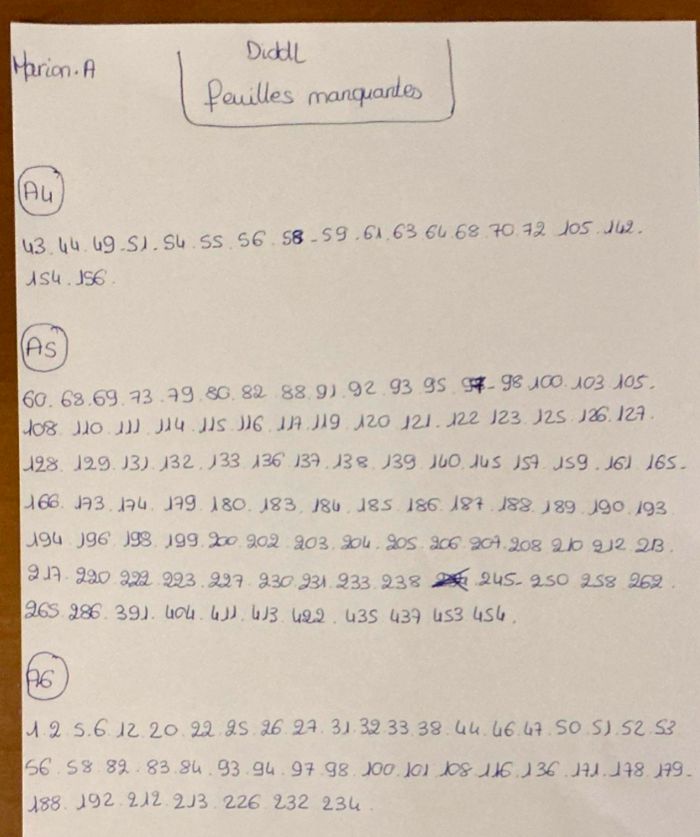 Diddl
Marion.A
feuilles manquantes
A4
43. 44. 49. 51. 54. 55. 56. 58. 59. 61. 63 64. 68. 70. 72. 105. 142.
154. 156.
A5
60. 68. 69. 73. 79. 80. 82. 88. 91. 92. 93. 95. 97. 98. 100. 103. 105.
108. 110. 111. 114. 115. 116. 117. 119. 120 121. 122 123. 125. 126. 127.
128. 129. 131. 132. 133 136 137. 138. 139. 140. 145 157. 159. 161. 165.
166. 173. 174. 179. 180. 183. 184. 185. 186. 187. 188. 189. 190. 193
194. 196. 198. 199. 200 202. 203. 204. 205. 206 207. 208 210 212 213.
217. 220 222. 223. 227. 230 231. 233. 238 245. 250 258 262.
265. 286. 391. 404. 411. 413. 422. 435 437 453 454.
A6
1. 2. 5. 6. 12. 20. 22. 25. 26. 27. 31. 32 33. 38. 44. 46. 47. 50. 51. 52. 53
56. 58. 82. 83. 84. 93. 94. 97. 98. 100. 101. 108. 116. 136. 171. 178. 179.
188. 192. 212. 213. 226. 232 234.